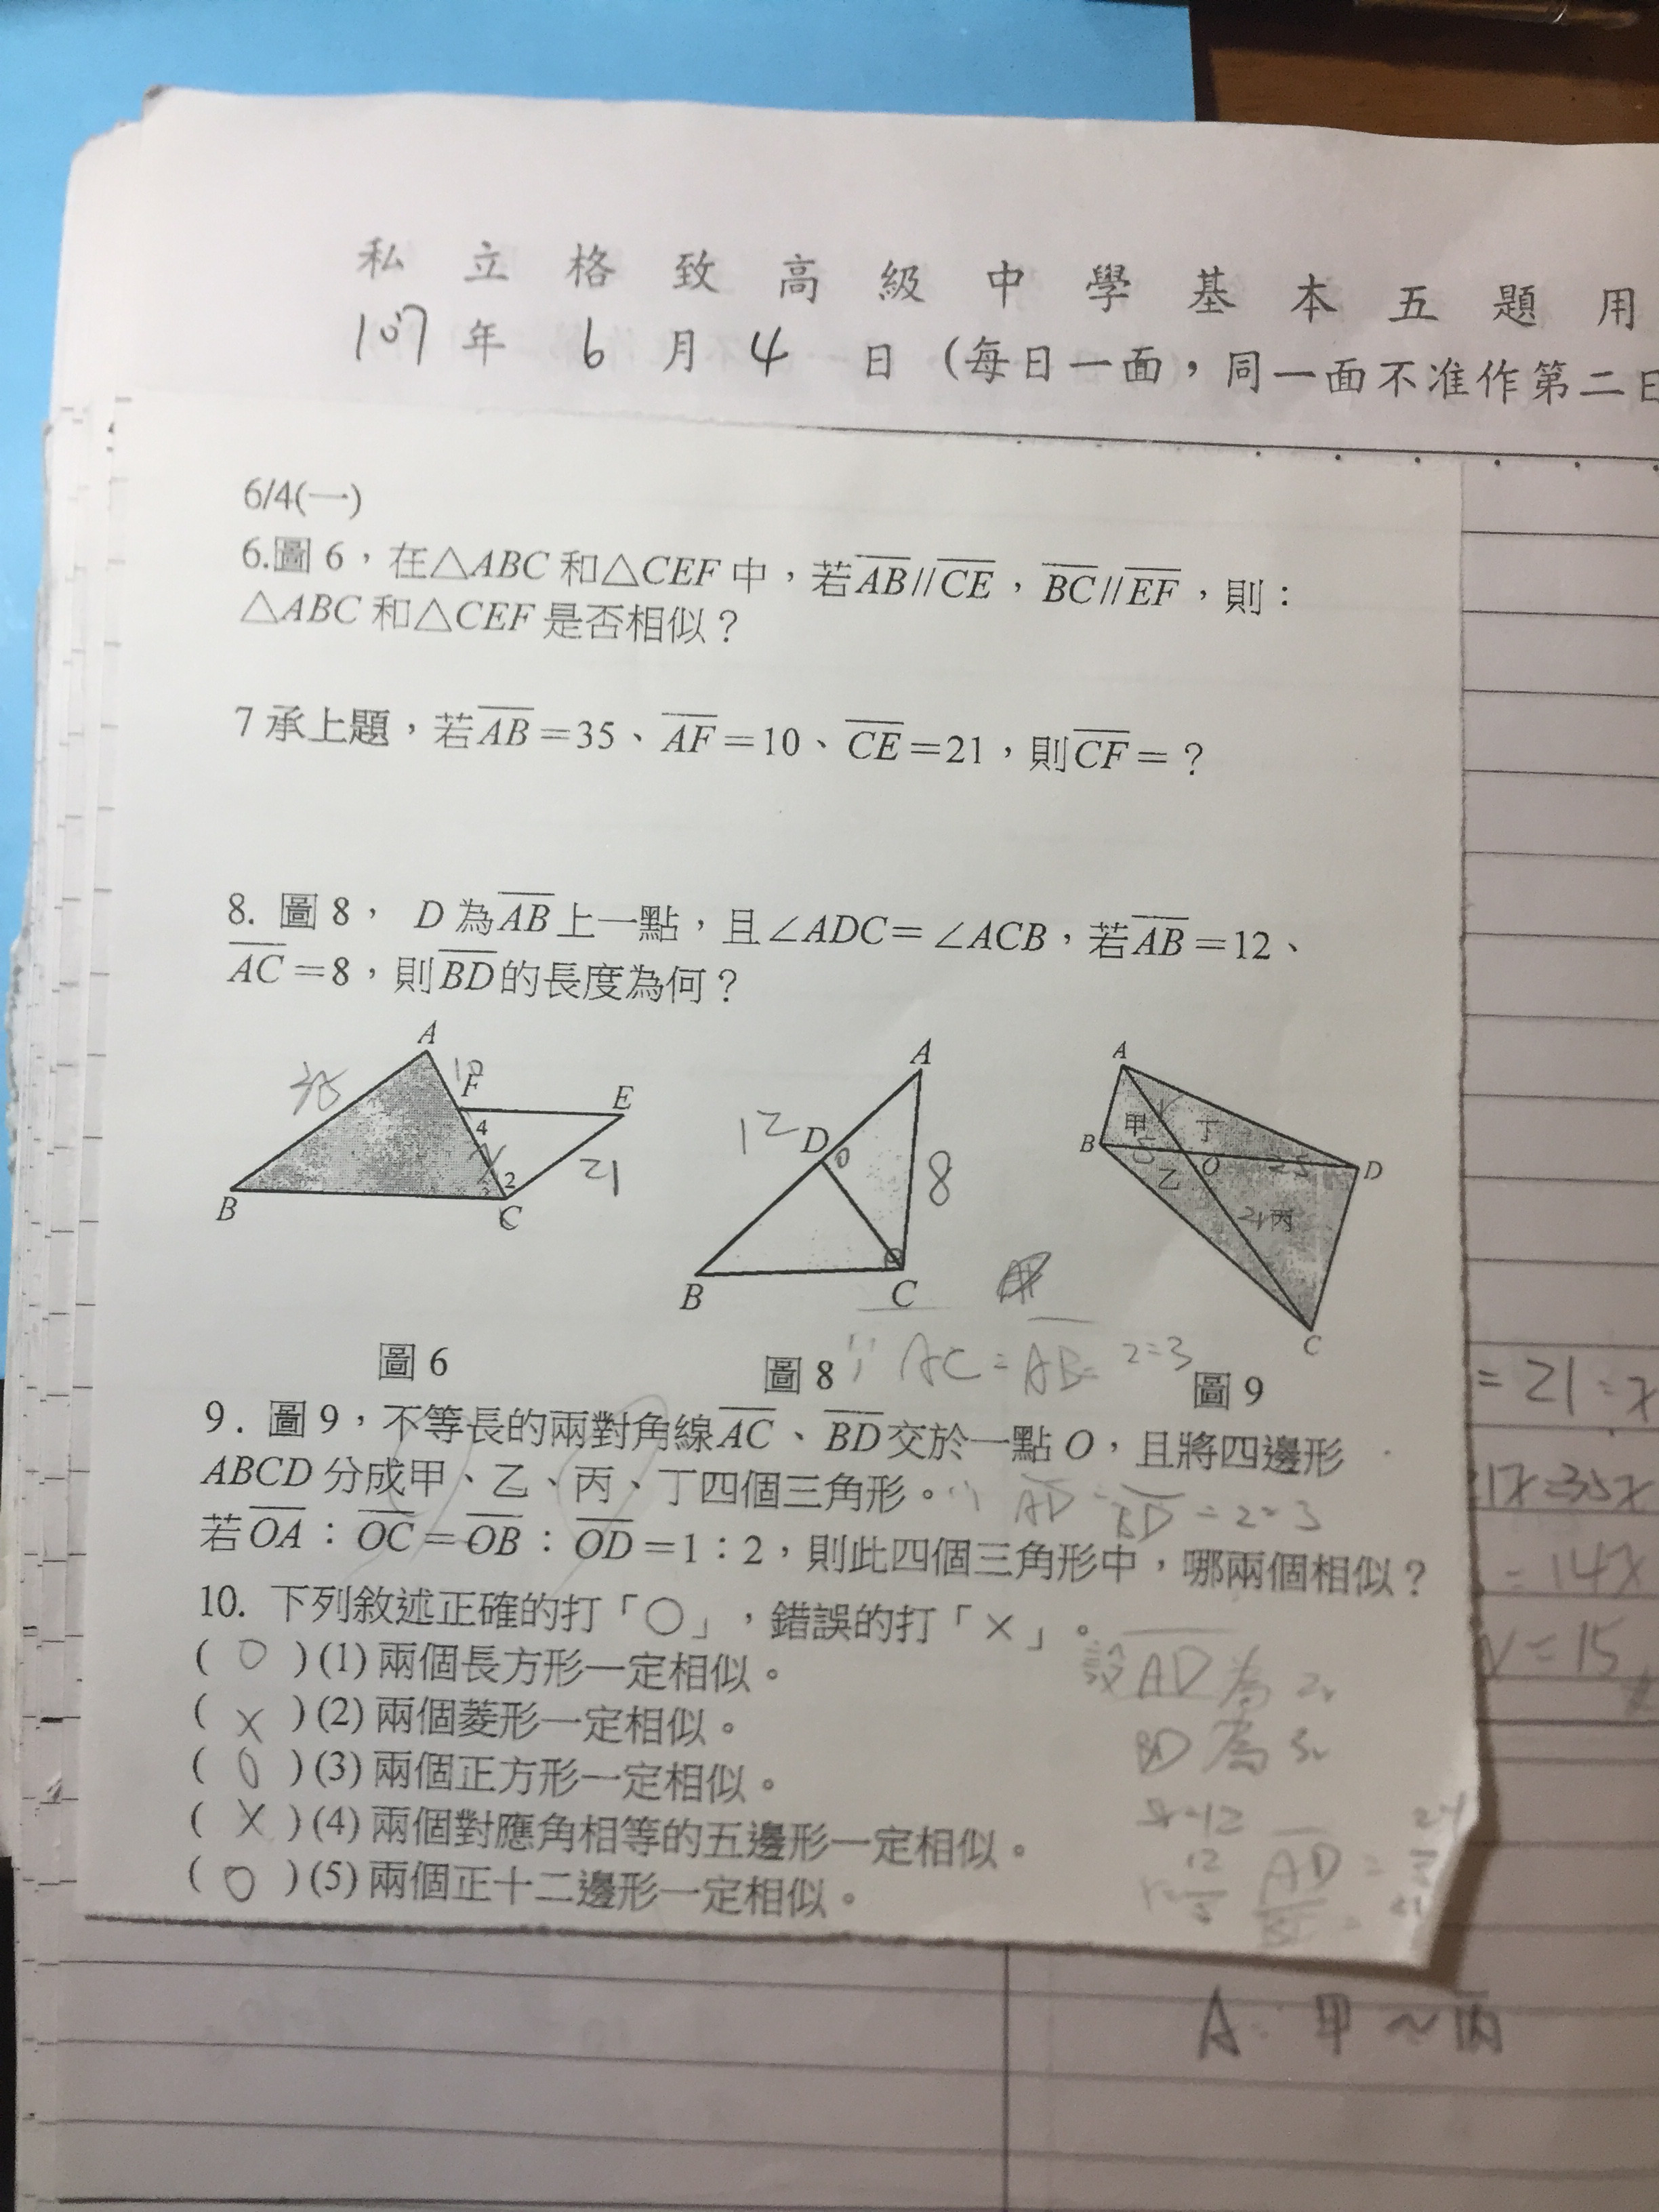 私立格致高級中學基本五題用
107年 6月 4日(每日一面,同一面不准作第二日
6/4(一)
6.圖 6,在△ABC 和△CEF 中,若AB//CE,BC//EF,則:
△ABC 和△CEF 是否相似?
7 承上題,若AB=35、AF=10、CE=21,則CF=?
8. 圖 8, D 為AB上一點,且∠ADC=∠ACB,若AB=12、
AC=8,則BD的長度為何?
A
35
10
F
E
4
21
2
B
C
A
12
D
8
B
C
A
甲
丁
B
O
D
乙
丙
C
圖 6
圖 8
AC=AB=2=3
圖 9
= 21 = x
9. 圖 9,不等長的兩對角線AC、BD交於一點 O,且將四邊形
ABCD 分成甲、乙、丙、丁四個三角形。
AD=BD=2=3
若OA:OC=OB:OD=1:2,則此四個三角形中,哪兩個相似?
= 14x
10. 下列敘述正確的打「○」,錯誤的打「×」。
= 15
( O )(1) 兩個長方形一定相似。
設AD為2r
( X )(2) 兩個菱形一定相似。
BD為3r
( O )(3) 兩個正方形一定相似。
( X )(4) 兩個對應角相等的五邊形一定相似。
( O )(5) 兩個正十二邊形一定相似。
AD=
A: 甲~丙